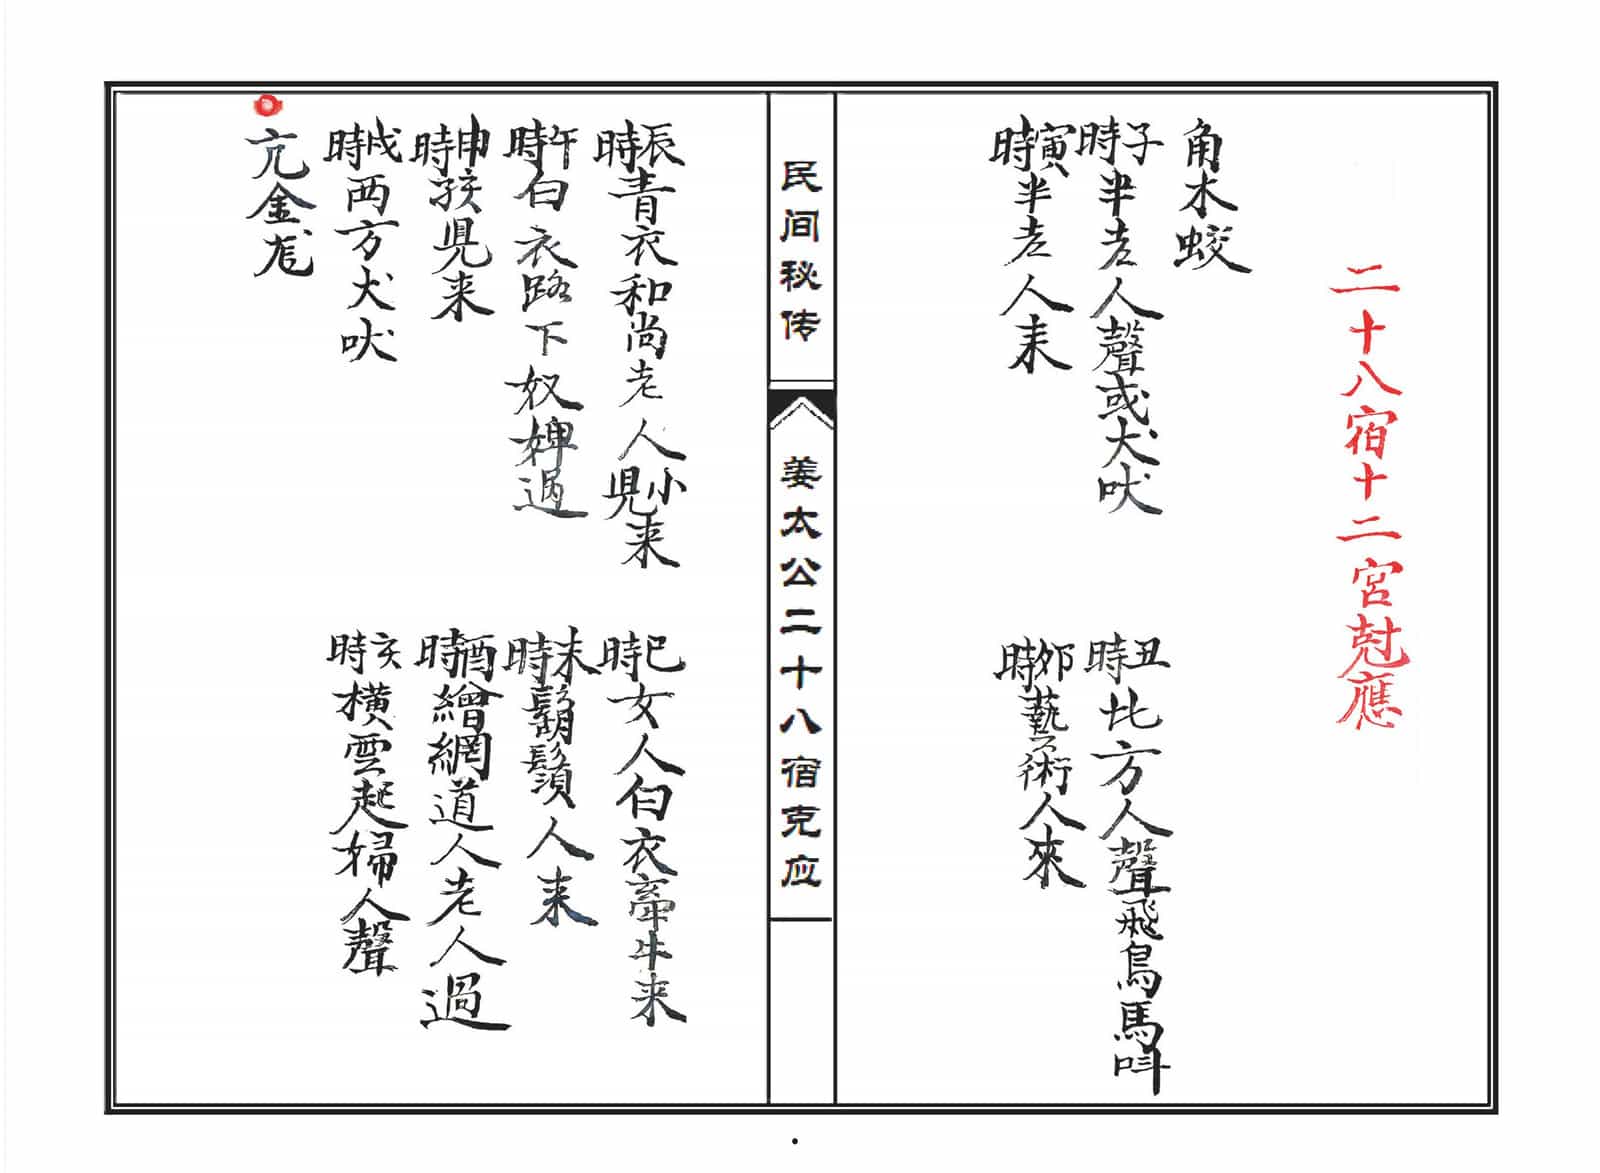 二十八宿十二宮尅應
角木蛟
子時半老人聲或犬吠
丑時北方人聲飛鳥馬叫
寅時半老人来
卯時藝術人來
民间秘传
姜太公二十八宿克应
辰時青衣和尚老人小児来
巳時女人白衣牽牛来
午時白衣路下奴婢過
未時鬍鬚人来
申時孩児来
酉時繒網道人老人過
戌時西方犬吠
亥時橫雲起婦人聲
亢金龙